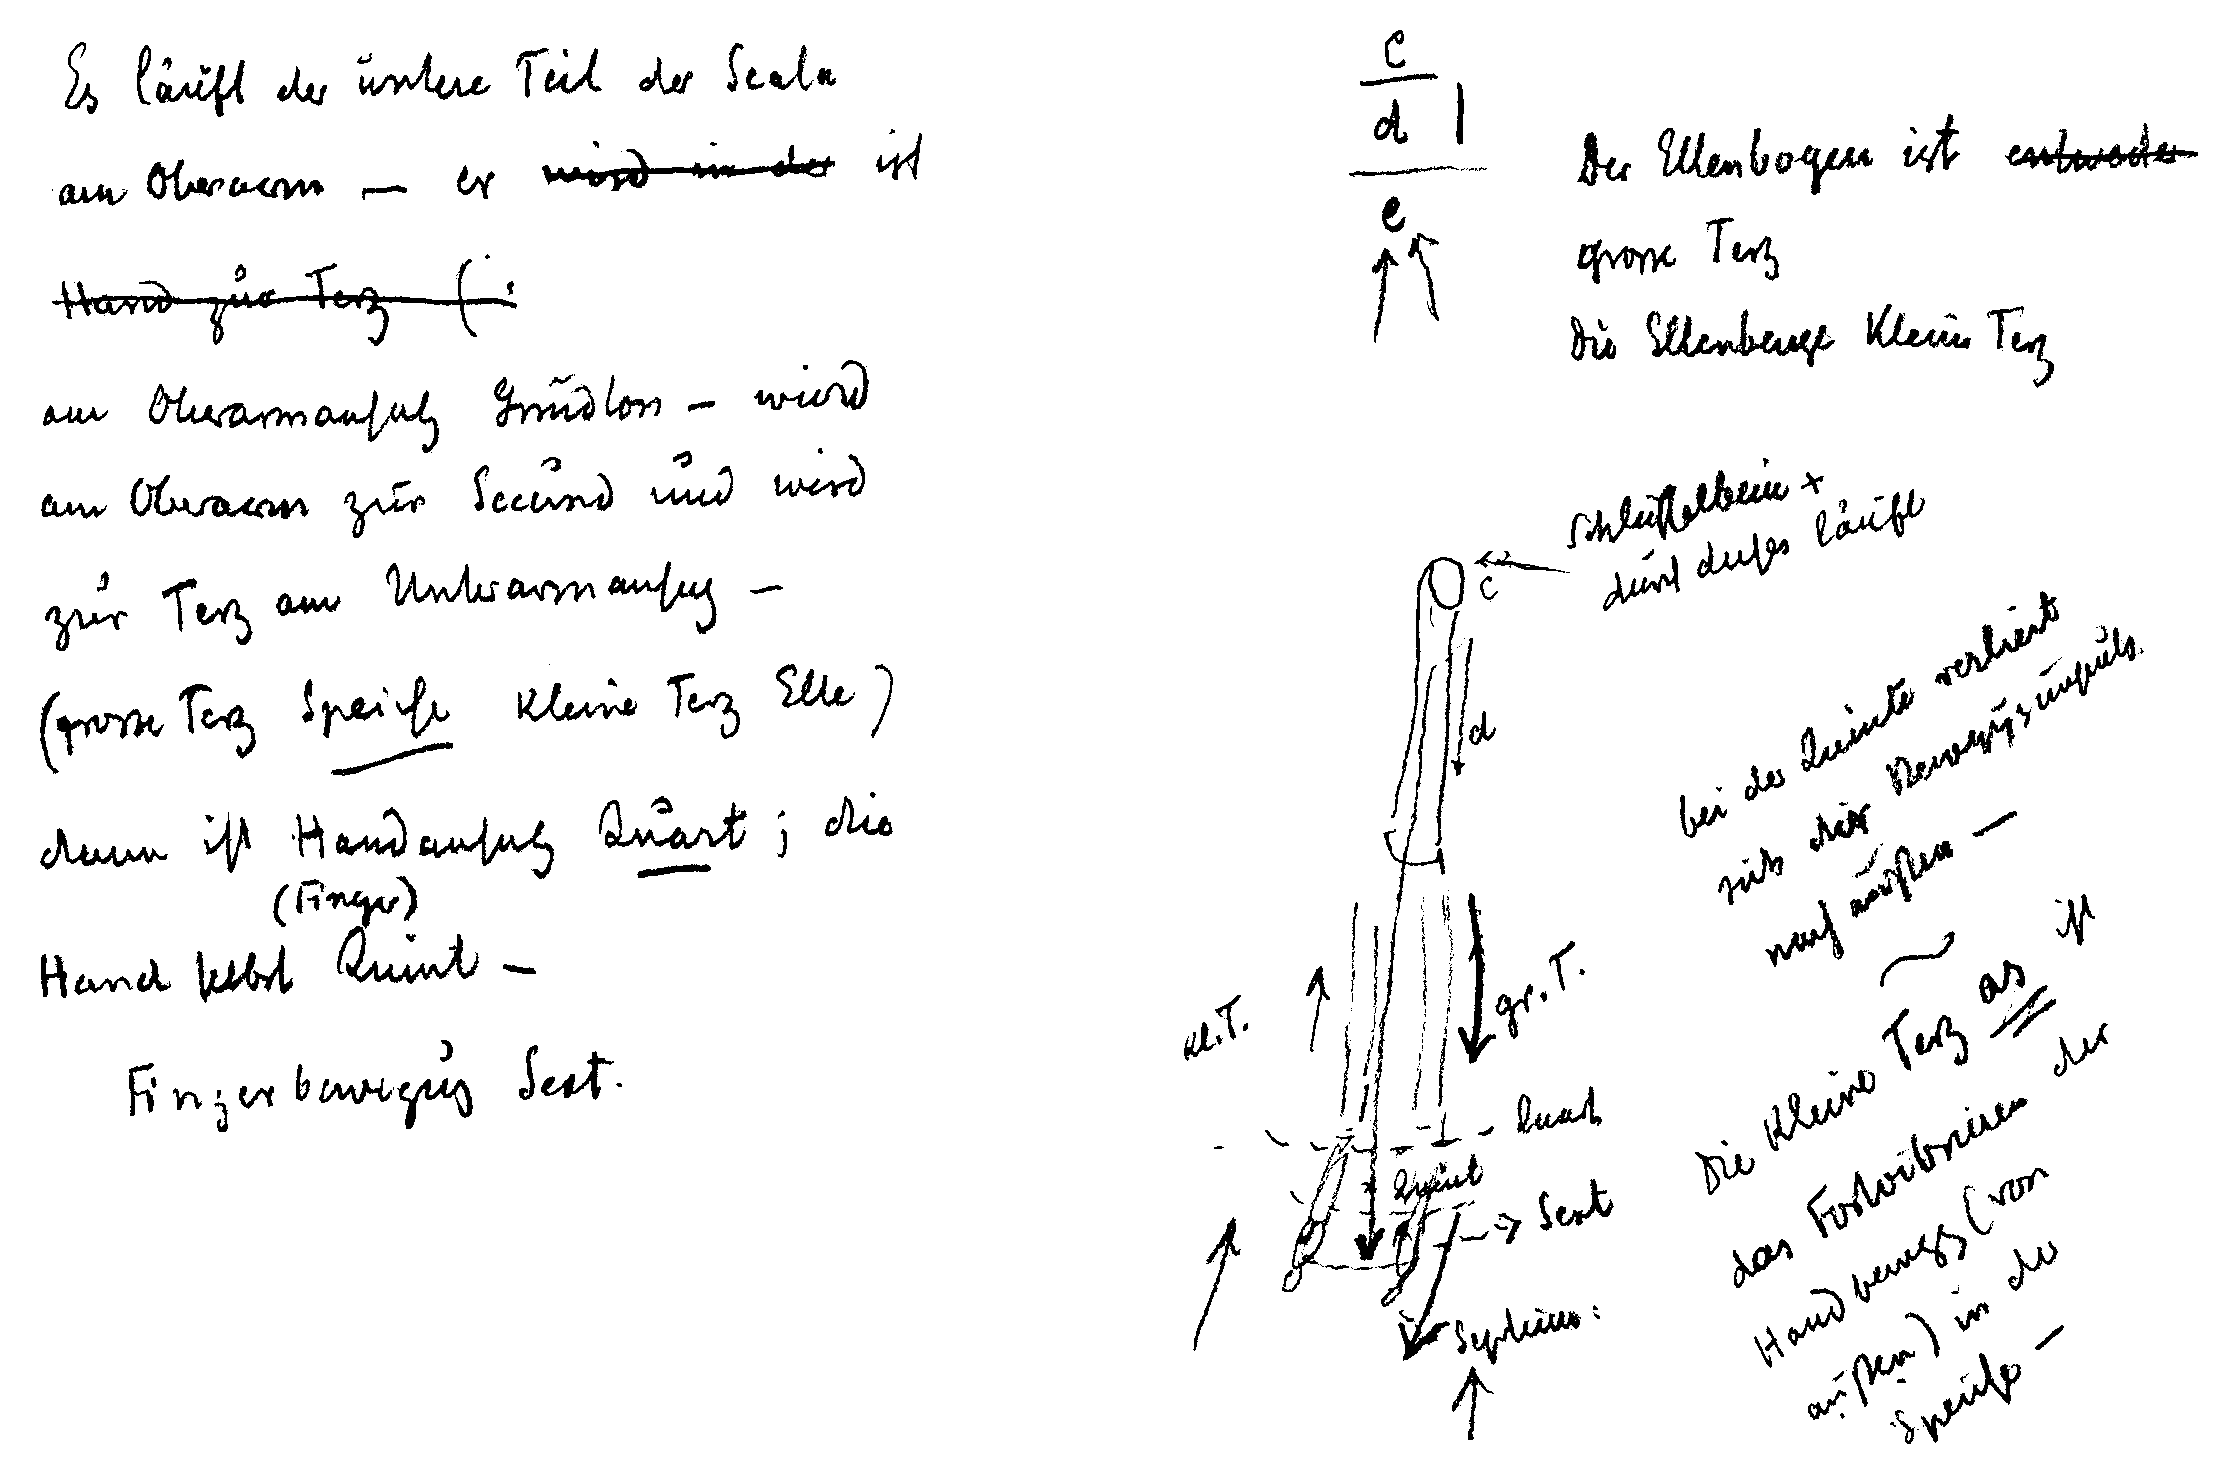 Es läuft der untere Teil der Scala
am Oberarm – er wird in der ist
Hand zur Terz (:
am Oberarmansatz Grundton – wird
am Oberarm zur Secund und wird
zur Terz am Unterarmansatz –
(grosse Terz Speiche kleine Terz Elle)
dann ist Handansatz Quart; die
(Finger)
Hand selbst Quint –
Fingerbewegung Sext.
c
d |
e
Der Ellenbogen ist entweder
grosse Terz
Die Ellenbeuge kleine Terz
Schlüsselbein +
durch dieses läuft
c
d
bei der Quinte verliert
sich der Bewegungsimpuls
nach außen –
kl. T.
gr. T.
Quart
Quint
Sext
Septime:
Die kleine Terz as ist
das Fortvibrieren der
Handbewegg (von
außen) in der
Speiche –